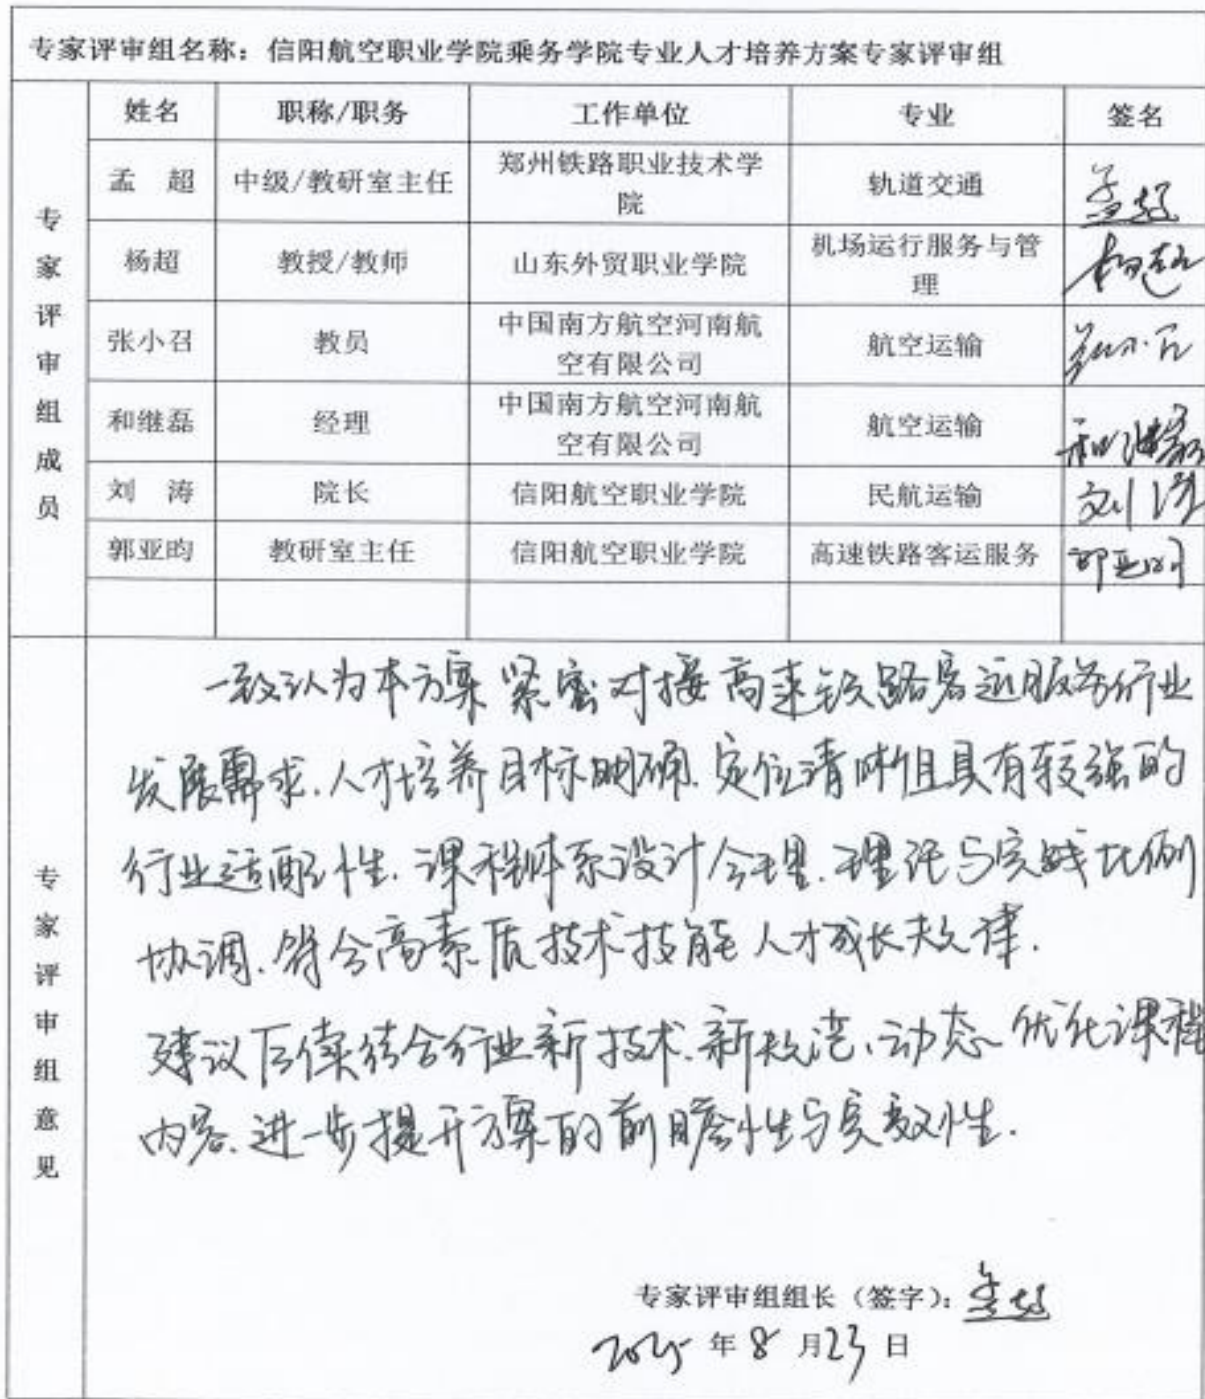 专家评审组名称：信阳航空职业学院乘务学院专业人才培养方案专家评审组
专家评审组成员
姓名 职称/职务 工作单位 专业 签名
孟 超 中级/教研室主任 郑州铁路职业技术学院 轨道交通 孟超
杨超 教授/教师 山东外贸职业学院 机场运行服务与管理 杨超
张小召 教员 中国南方航空河南航空有限公司 航空运输
和继磊 经理 中国南方航空河南航空有限公司 航空运输 和继磊
刘 涛 院长 信阳航空职业学院 民航运输 刘涛
郭亚昀 教研室主任 信阳航空职业学院 高速铁路客运服务 郭亚昀
专家评审组意见
一致认为本方案紧密对接高速铁路客运服务行业
发展需求.人才培养目标明确.定位清晰且具有较强的
行业适配性.课程体系设计合理.理论与实践比例
协调.符合高素质技术技能人才成长规律.
建议后续结合行业新技术.新规范、动态优化课程
内容.进一步提升方案的前瞻性与实效性.
专家评审组组长（签字）：孟超
2025 年 8 月 23 日